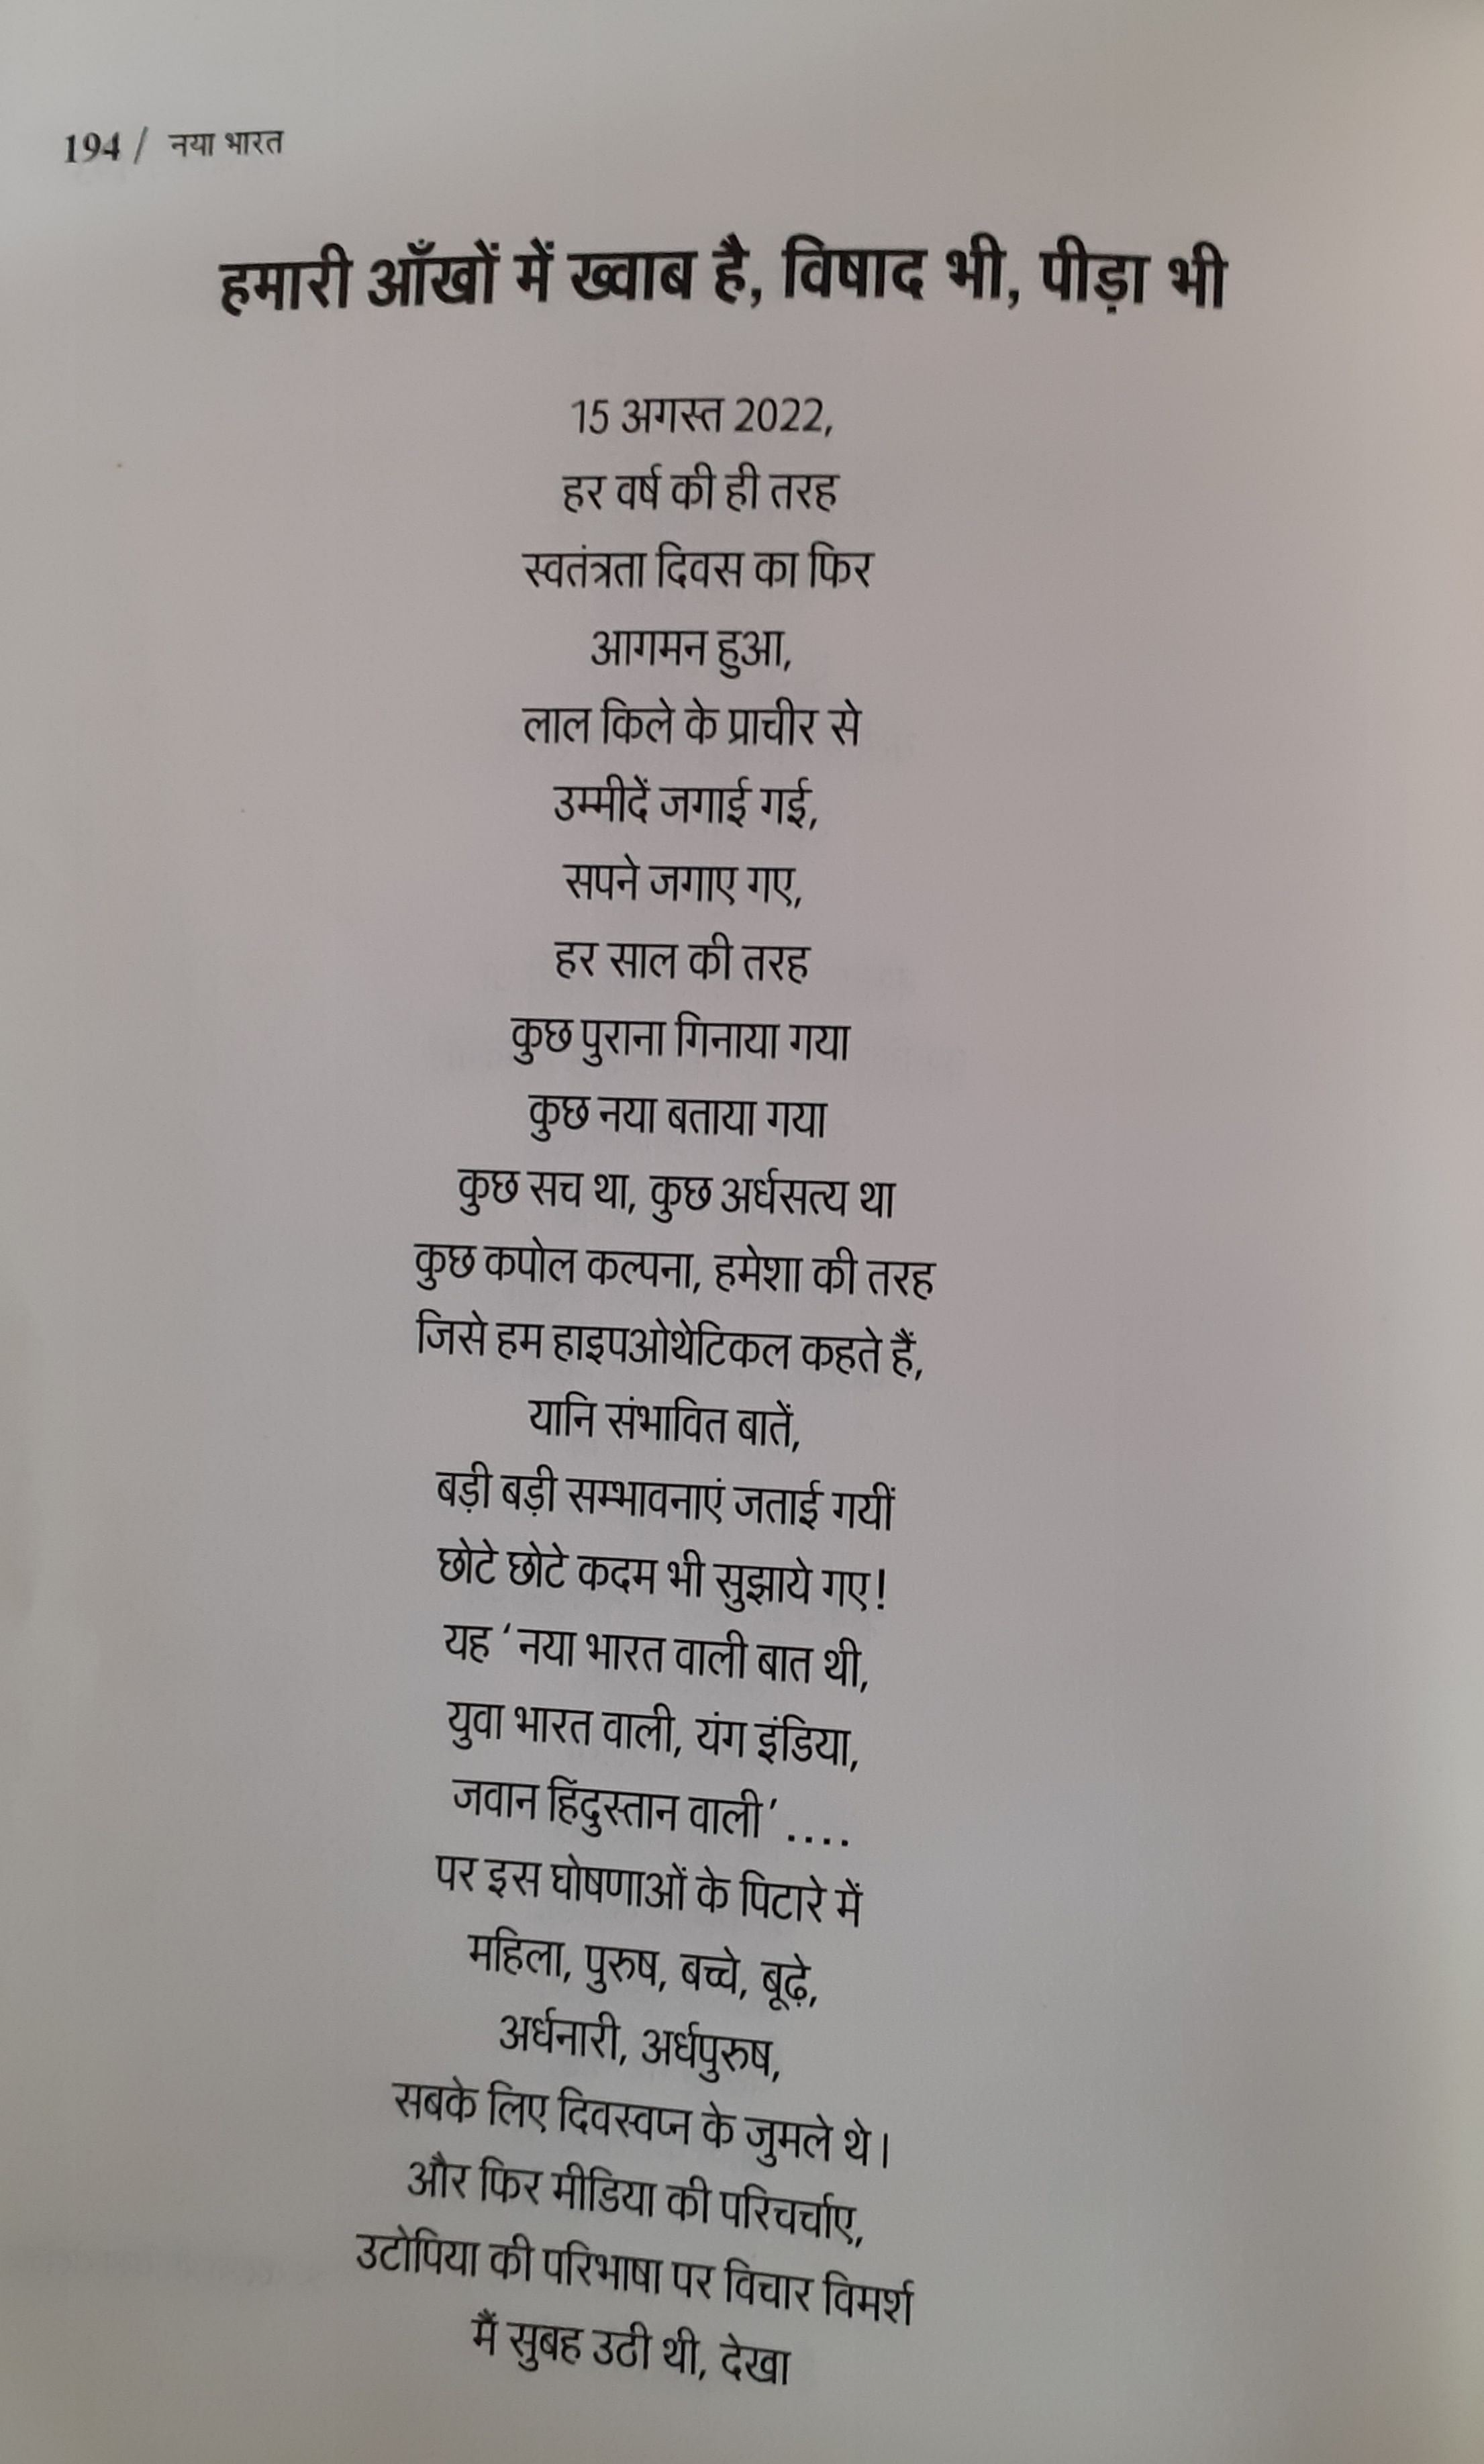 194 / नया भारत
हमारी आँखों में ख्वाब है, विषाद भी, पीड़ा भी
15 अगस्त 2022,
हर वर्ष की ही तरह
स्वतंत्रता दिवस का फिर
आगमन हुआ,
लाल किले के प्राचीर से
उम्मीदें जगाई गई,
सपने जगाए गए,
हर साल की तरह
कुछ पुराना गिनाया गया
कुछ नया बताया गया
कुछ सच था, कुछ अर्धसत्य था
कुछ कपोल कल्पना, हमेशा की तरह
जिसे हम हाइपओथेटिकल कहते हैं,
यानि संभावित बातें,
बड़ी बड़ी सम्भावनाएं जताई गयीं
छोटे छोटे कदम भी सुझाये गए!
यह ‘नया भारत वाली बात थी,
युवा भारत वाली, यंग इंडिया,
जवान हिंदुस्तान वाली’....
पर इस घोषणाओं के पिटारे में
महिला, पुरुष, बच्चे, बूढ़े,
अर्धनारी, अर्धपुरुष,
सबके लिए दिवस्वप्न के जुमले थे।
और फिर मीडिया की परिचर्चाए,
उटोपिया की परिभाषा पर विचार विमर्श
मैं सुबह उटी थी, देखा